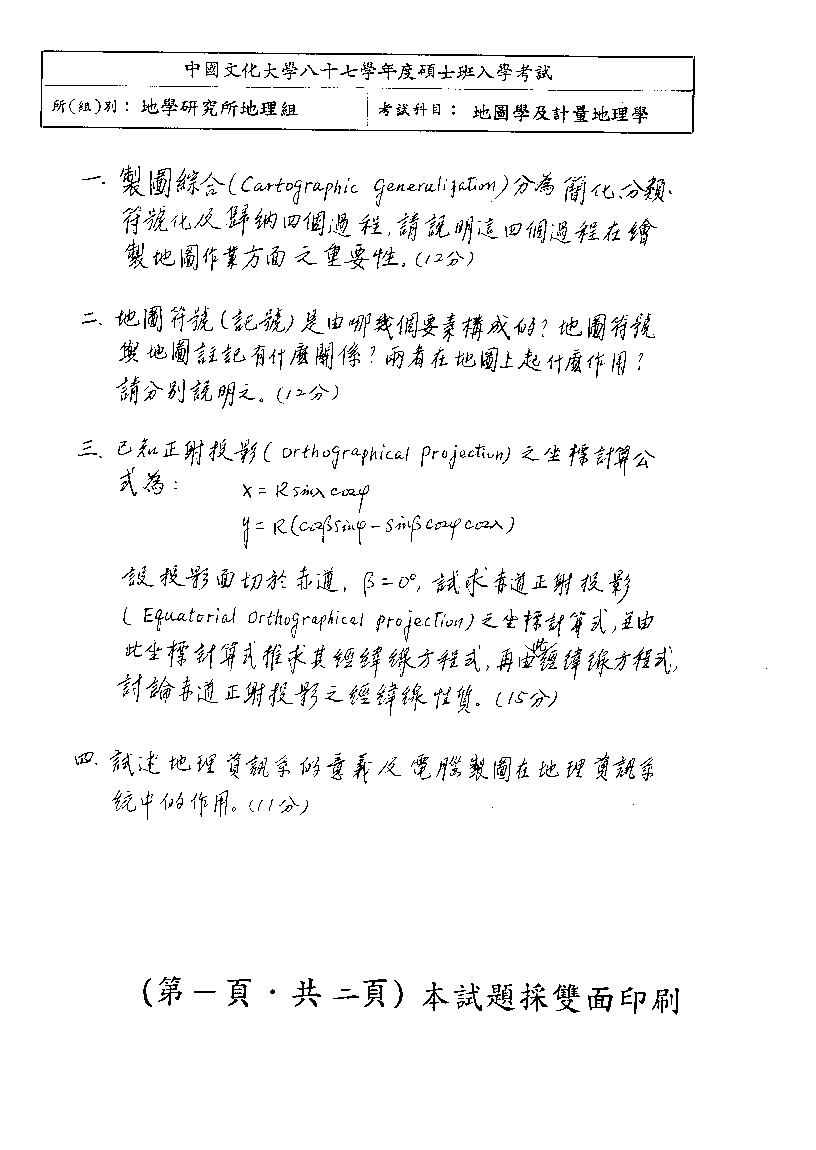 中國文化大學八十七學年度碩士班入學考試
所(組)別：地學研究所地理組 考試科目：地圖學及計量地理學
一、製圖綜合(Cartographic Generalization)分為簡化、分類、
符號化及歸納四個過程,請說明這四個過程在繪
製地圖作業方面之重要性。(12分)
二、地圖符號(記號)是由哪幾個要素構成的?地圖符號
與地圖註記有什麼關係?兩者在地圖上起什麼作用?
請分別說明之。(12分)
三、已知正射投影(Orthographical projection)之坐標計算公
式為： x=Rsinλcosφ
y=R(cosβsinφ-sinβcosφcosλ)
設投影面切於赤道,β=0°,試求赤道正射投影
(Equatorial Orthographical projection)之坐標計算式,並由
此坐標計算式推求其經緯線方程式,再由此經緯線方程式,
討論赤道正射投影之經緯線性質。(15分)
四、試述地理資訊系的意義及電腦製圖在地理資訊系
統中的作用。(11分)
(第一頁·共二頁)本試題採雙面印刷